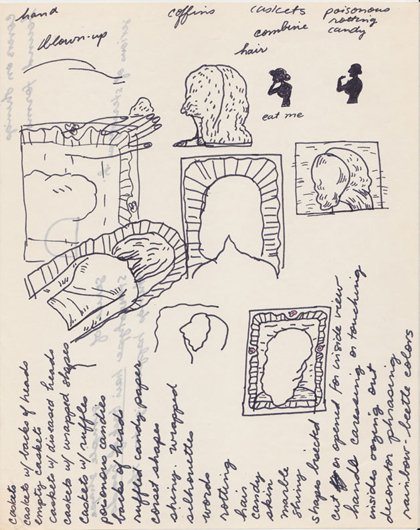 hand
blown-up
coffins
caskets
combine
hair
poisonous
rotting
candy
eat me
caskets
caskets w/ backs of heads
empty caskets
caskets w/ diseased heads
caskets w/ wrapped shapes
caskets w/ ruffles
poisonous candies
backs of heads
ruffled candy paper
corset shapes
shiny. wrapped
silhouettes
words
rotting
hair
candy
skin
marble
shiny
shapes bisected
cut or opened for inside view
hands caressing or touching
insides oozing out
decorator phrasing
rainbow-beetle colors